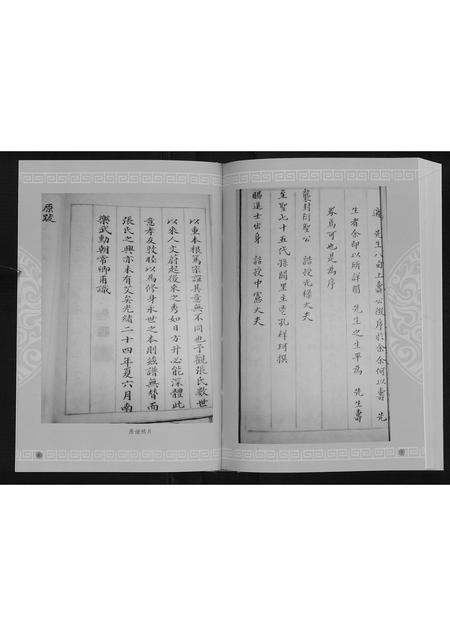 適 先生八旬上壽公徵序於余余何以壽 先
生者余即以所詳聞 先生之生平為 先生壽
眾焉可也是為序
襲封衍聖公 誥授光祿大夫
至聖七十五代孫闕里主鬯孔祥珂撰
賜進士出身 誥授中憲大夫
以重本根篤宗誼其意無不同也予觀張氏數世
以來人文蔚起後來之秀如日方升必能深體此
意孝友敦睦以為修身永世之本則茲譜無替而
張氏之興亦未有艾矣光緒二十四年夏六月南
樂武勳朝常卿甫識
原跋
舊譜照片